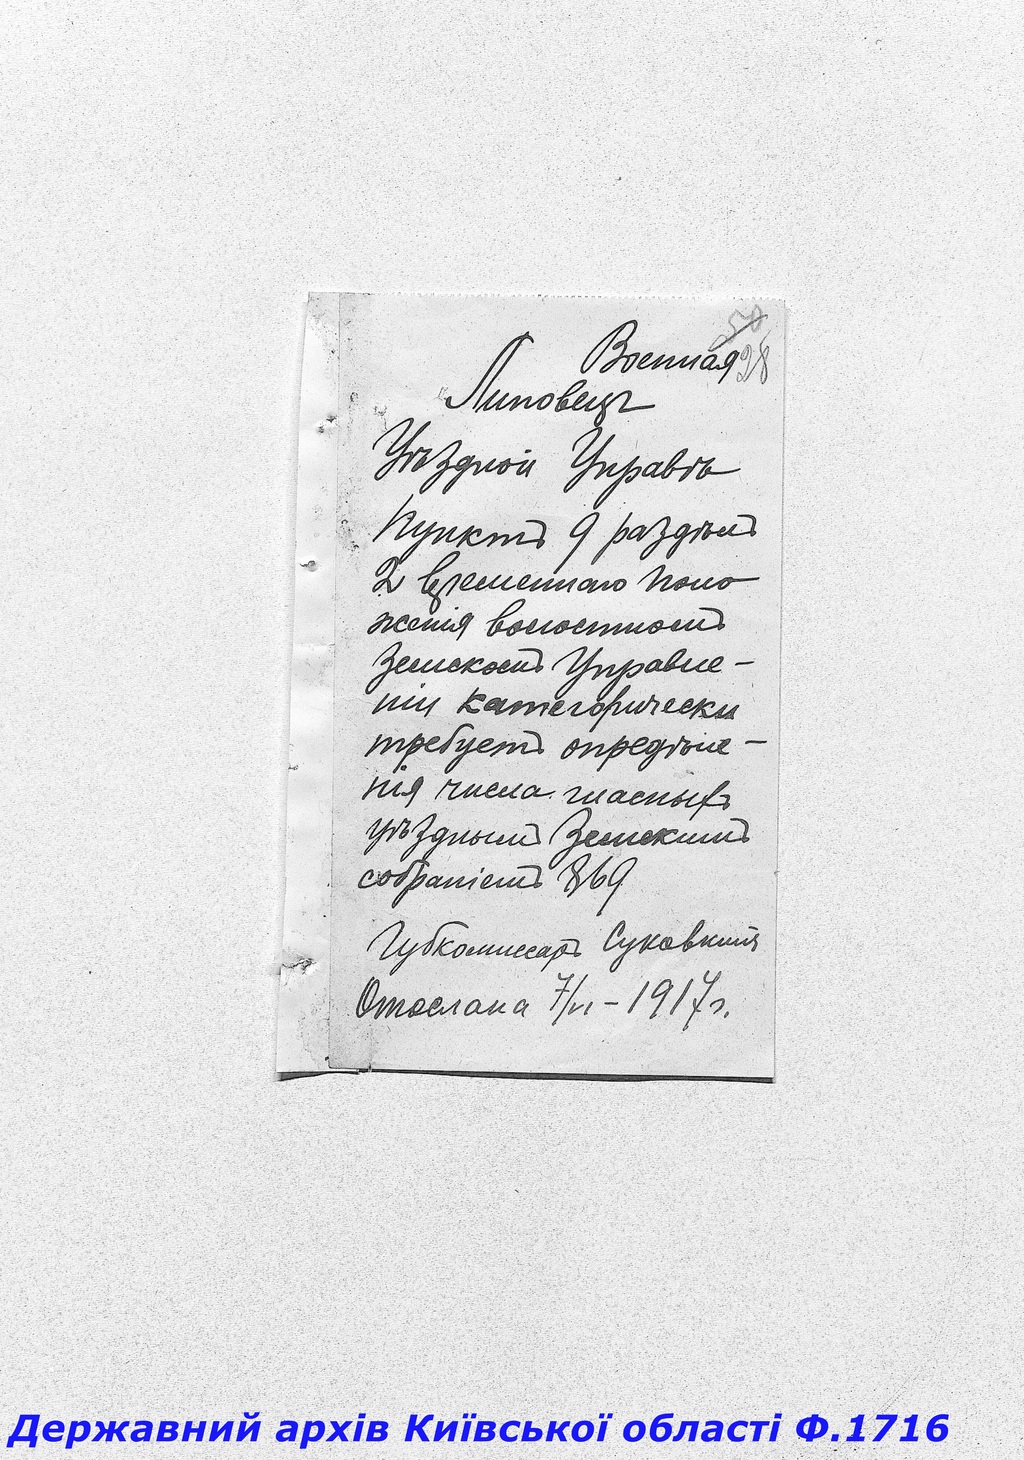 50
28
Военная
Липовецъ
Уѣздной Управѣ
Пунктъ 9 раздѣлъ
2 временнаго поло
женія волостномъ
Земскомъ Управле-
ніи категорически
требуетъ опредѣле-
нія числа гласныхъ
уѣзднымъ Земскимъ
собраніемъ 869
Губкомиссаръ Суковкинъ
Отослана 7/VI - 1917 г.
Державний архів Київської області Ф.1716